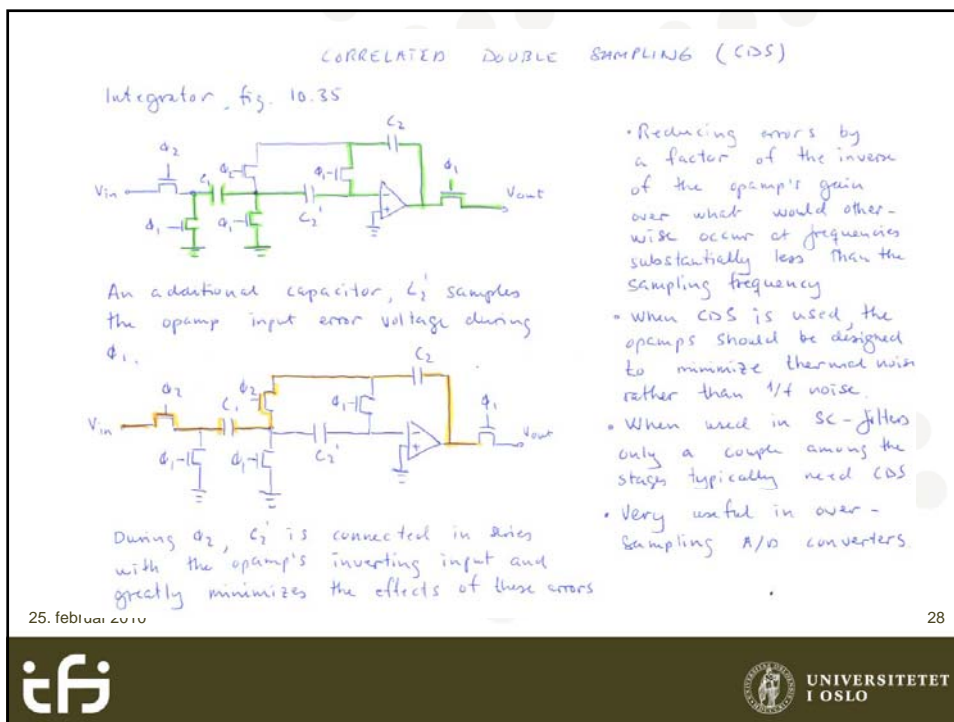 CORRELATED DOUBLE SAMPLING (CDS)
Integrator, fig. 10.35
C2
Φ2
Φ1
C1
Φ2
Φ1
Vin
Vout
Φ1
Φ1
C2'
An additional capacitor, C2' samples
the opamp input error voltage during
Φ1.
C2
Φ2
Φ1
Φ2
C1
Φ1
Vin
Vout
Φ1
Φ1
C2'
During Φ2, C2' is connected in series
with the opamp's inverting input and
greatly minimizes the effects of these errors
• Reducing errors by
a factor of the inverse
of the opamp's gain
over what would other-
wise occur at frequencies
substantially less than the
sampling frequency
• When CDS is used, the
opamps should be designed
to minimize thermal noise
rather than 1/f noise.
• When used in SC-filters
only a couple among the
stages typically need CDS
• Very useful in over-
sampling A/D converters.
25. februar 2010
28
ifi
UNIVERSITETET
I OSLO